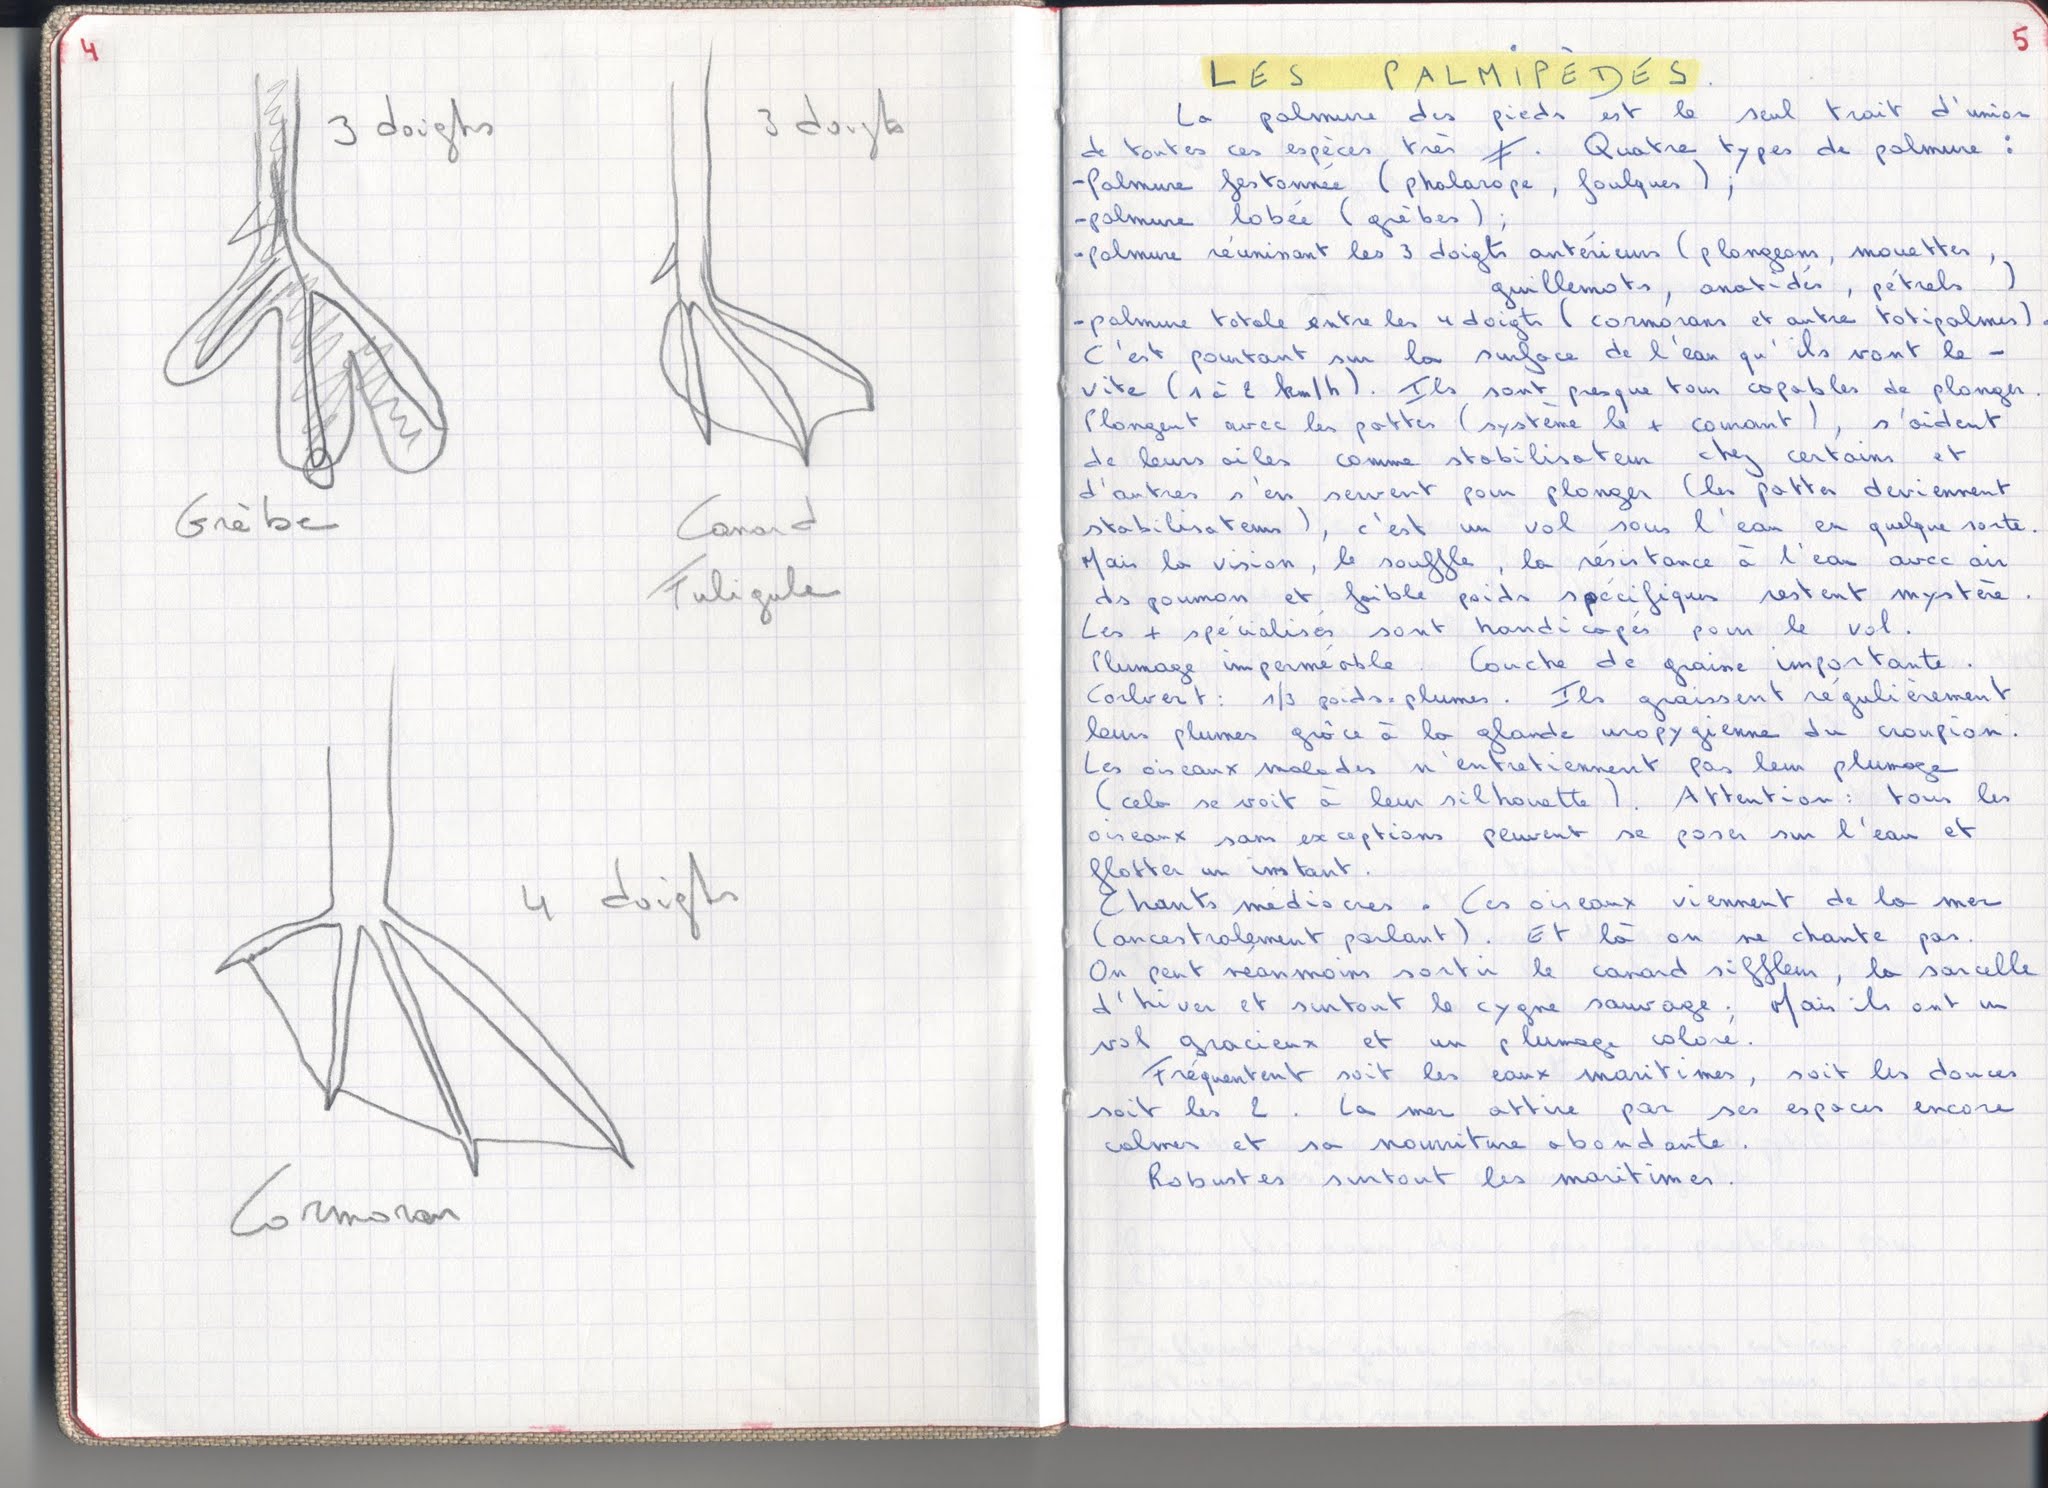 4
3 doigts
3 doigts
Grèbe
Canard
Fuligule
4 doigts
Cormoran
5
LES PALMIPÈDES.
La palmure des pieds est le seul trait d'union
de toutes ces espèces très ≠. Quatre types de palmure :
-Palmure festonnée (phalarope, foulques) ;
-palmure lobée (grèbes) ;
-palmure réunissant les 3 doigts antérieurs (plongeons, mouettes,
guillemots, anatidés, pétrels )
-palmure totale entre les 4 doigts (cormorans et autre totipalmes).
C'est pourtant sur la surface de l'eau qu'ils vont le -
vite (1 à 2 km/h). Ils sont presque tous capables de plonger.
Plongent avec les pattes (système le + courant), s'aident
de leurs ailes comme stabilisateur chez certains et
d'autres s'en servent pour plonger (les pattes deviennent
stabilisateurs), c'est un vol sous l'eau en quelque sorte.
Mais la vision, le souffle, la résistance à l'eau avec air
ds poumon et faible poids spécifiques restent mystère.
Les + spécialisés sont handicapés pour le vol.
Plumage imperméable. Couche de graisse importante.
Colvert : 1/3 poids=plumes. Ils graissent régulièrement
leurs plumes grâce à la glande uropygienne du croupion.
Les oiseaux malades n'entretiennent pas leur plumage
(cela se voit à leur silhouette). Attention : tous les
oiseaux sans exceptions peuvent se poser sur l'eau et
flotter un instant.
Chants médiocres. Ces oiseaux viennent de la mer
(ancestralement parlant). Et là on ne chante pas.
On peut néanmoins sortir le canard siffleur, la sarcelle
d'hiver et surtout le cygne sauvage. Mais ils ont un
vol gracieux et un plumage coloré.
Fréquentent soit les eaux maritimes, soit les douces
soit les 2. La mer attire par ses espaces encore
calmes et sa nourriture abondante.
Robustes surtout les maritimes.